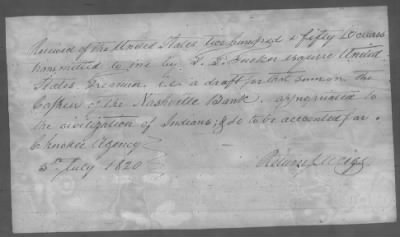 Received of the United States two hundred & fifty Dollars
transmitted to me by T. T. Tucker esquire United
States Treasurer in a draft for that sum on the
Cashier of the Nashville Bank. appropriated to
the civilization of Indians, & to be accounted for.
Cherokee Agency
5th July 1820
Return J. Meigs